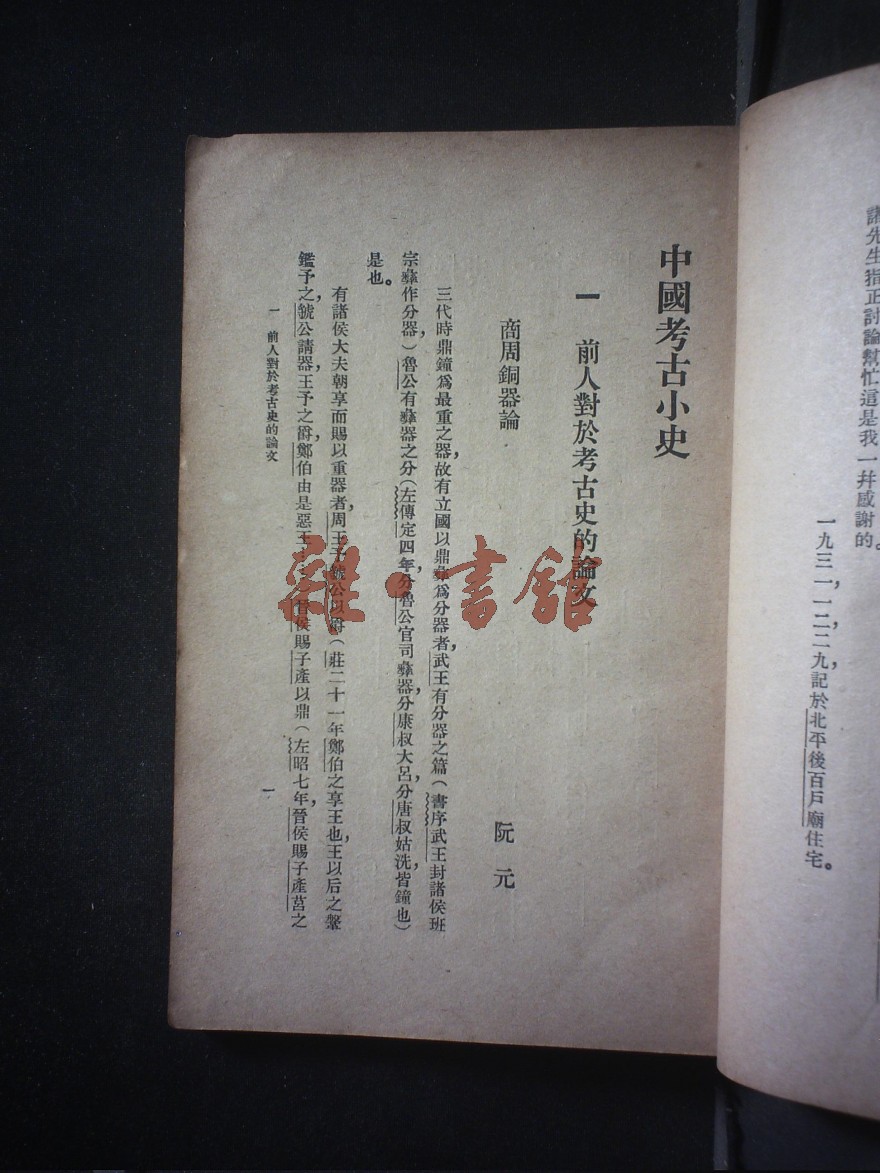 諸先生指正討論幫忙這是我一幷感謝的。
一九三一，一二，二九，記於北平後百戶廟住宅。
中國考古小史
一　前人對於考古史的論文
商周銅器論
阮　元
三代時鼎鐘爲最重之器，故有立國以鼎彝爲分器者，武王有分器之篇（書序武王封諸侯班
宗彝作分器，）魯公有彝器之分（左傳定四年，分魯公官司彝器，分康叔大呂，分唐叔姑洗，皆鐘也）
是也。
有諸侯大夫朝享而賜以重器者，周王予虢公以爵（莊二十一年鄭伯之享王也，王以后之鞶
鑑予之，虢公請器，王予之爵，鄭伯由是惡王）晉侯賜子產以鼎（左昭七年，晉侯賜子產莒之
一　前人對於考古史的論文
一
雜·書館